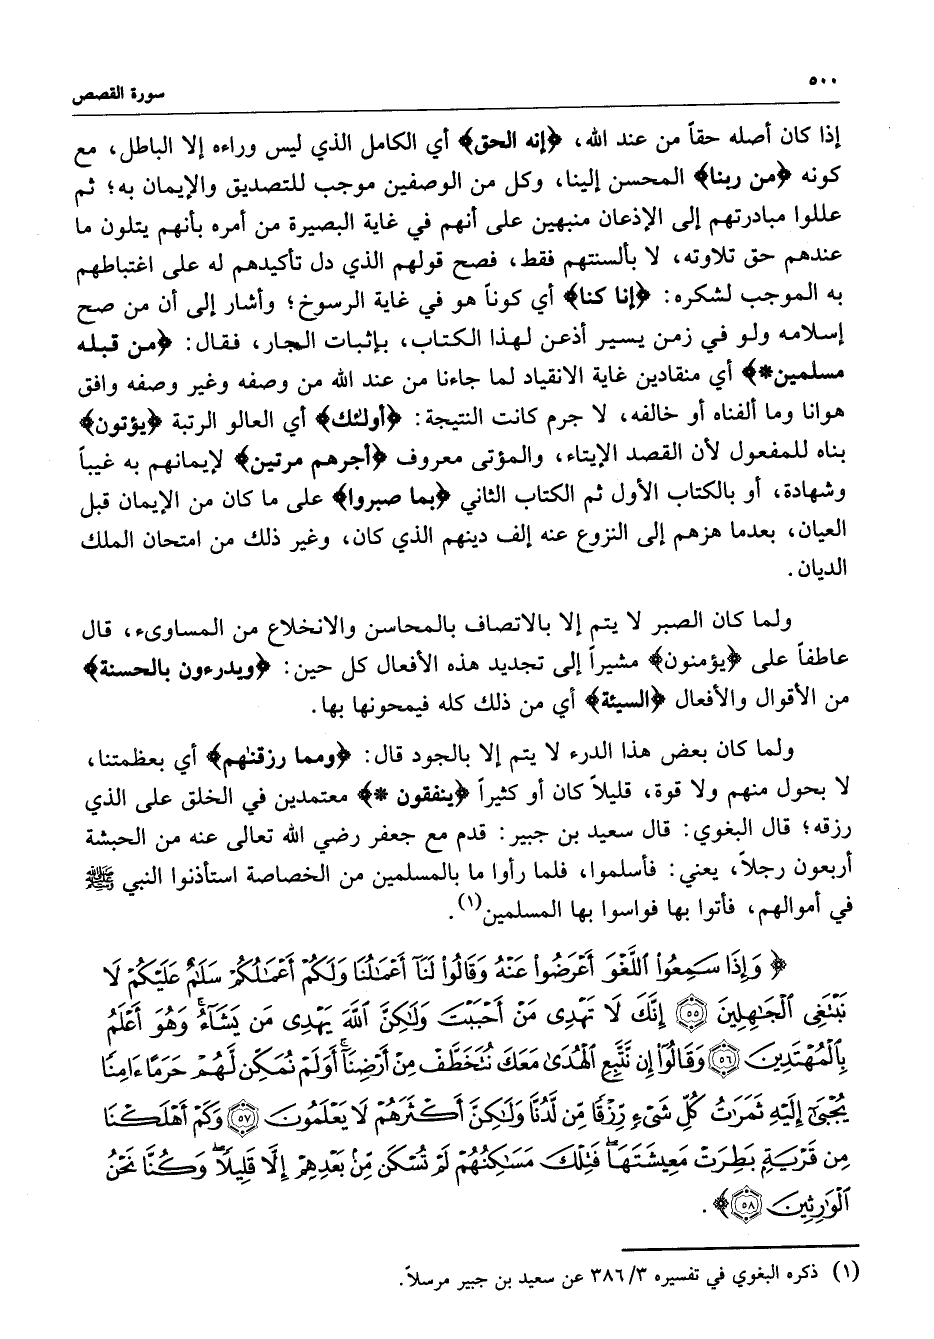 ٥٠٠
سورة القصص
إذا كان أصله حقاً من عند الله، ﴿إنه الحق﴾ أي الكامل الذي ليس وراءه إلا الباطل، مع
كونه ﴿من ربنا﴾ المحسن إلينا، وكل من الوصفين موجب للتصديق والإيمان به؛ ثم
عللوا مبادرتهم إلى الإذعان منبهين على أنهم في غاية البصيرة من أمره بأنهم يتلون ما
عندهم حق تلاوته، لا بألسنتهم فقط، فصح قولهم الذي دل تأكيدهم له على اغتباطهم
به الموجب لشكره: ﴿إنا كنا﴾ أي كوناً هو في غاية الرسوخ؛ وأشار إلى أن من صح
إسلامه ولو في زمن يسير أذعن لهذا الكتاب، بإثبات الجار، فقال: ﴿من قبله
مسلمين*﴾ أي منقادين غاية الانقياد لما جاءنا من عند الله من وصفه وغير وصفه وافق
هوانا وما ألفناه أو خالفه، لا جرم كانت النتيجة: ﴿أولئك﴾ أي العالو الرتبة ﴿يؤتون﴾
بناه للمفعول لأن القصد الإيتاء، والمؤتى معروف ﴿أجرهم مرتين﴾ لإيمانهم به غيباً
وشهادة، أو بالكتاب الأول ثم الكتاب الثاني ﴿بما صبروا﴾ على ما كان من الإيمان قبل
العيان، بعدما هزهم إلى النزوع عنه إلف دينهم الذي كان، وغير ذلك من امتحان الملك
الديان.
ولما كان الصبر لا يتم إلا بالاتصاف بالمحاسن والانخلاع من المساوىء، قال
عاطفاً على ﴿يؤمنون﴾ مشيراً إلى تجديد هذه الأفعال كل حين: ﴿ويدرءون بالحسنة﴾
من الأقوال والأفعال ﴿السيئة﴾ أي من ذلك كله فيمحونها بها.
ولما كان بعض هذا الدرء لا يتم إلا بالجود قال: ﴿ومما رزقنٰهم﴾ أي بعظمتنا،
لا بحول منهم ولا قوة، قليلاً كان أو كثيراً ﴿ينفقون *﴾ معتمدين في الخلق على الذي
رزقه؛ قال البغوي: قال سعيد بن جبير: قدم مع جعفر رضي الله تعالى عنه من الحبشة
أربعون رجلاً، يعني: فأسلموا، فلما رأوا ما بالمسلمين من الخصاصة استأذنوا النبي ﷺ
في أموالهم، فأتوا بها فواسوا بها المسلمين(١).
﴿ وَإِذَا سَمِعُوا۟ ٱللَّغْوَ أَعْرَضُوا۟ عَنْهُ وَقَالُوا۟ لَنَآ أَعْمَٰلُنَا وَلَكُمْ أَعْمَٰلُكُمْ سَلَٰمٌ عَلَيْكُمْ لَا
نَبْتَغِى ٱلْجَٰهِلِينَ ﴿٥٥﴾ إِنَّكَ لَا تَهْدِى مَنْ أَحْبَبْتَ وَلَٰكِنَّ ٱللَّهَ يَهْدِى مَن يَشَآءُ ۚ وَهُوَ أَعْلَمُ
بِٱلْمُهْتَدِينَ ﴿٥٦﴾ وَقَالُوٓا۟ إِن نَّتَّبِعِ ٱلْهُدَىٰ مَعَكَ نُتَخَطَّفْ مِنْ أَرْضِنَآ ۚ أَوَلَمْ نُمَكِّن لَّهُمْ حَرَمًا ءَامِنًا
يُجْبَىٰٓ إِلَيْهِ ثَمَرَٰتُ كُلِّ شَىْءٍ رِّزْقًا مِّن لَّدُنَّا وَلَٰكِنَّ أَكْثَرَهُمْ لَا يَعْلَمُونَ ﴿٥٧﴾ وَكَمْ أَهْلَكْنَا
مِن قَرْيَةٍۭ بَطِرَتْ مَعِيشَتَهَا ۖ فَتِلْكَ مَسَٰكِنُهُمْ لَمْ تُسْكَن مِّنۢ بَعْدِهِمْ إِلَّا قَلِيلًا ۖ وَكُنَّا نَحْنُ
ٱلْوَٰرِثِينَ ﴿٥٨﴾ ﴾.
(١) ذكره البغوي في تفسيره ٣/ ٣٨٦ عن سعيد بن جبير مرسلاً.